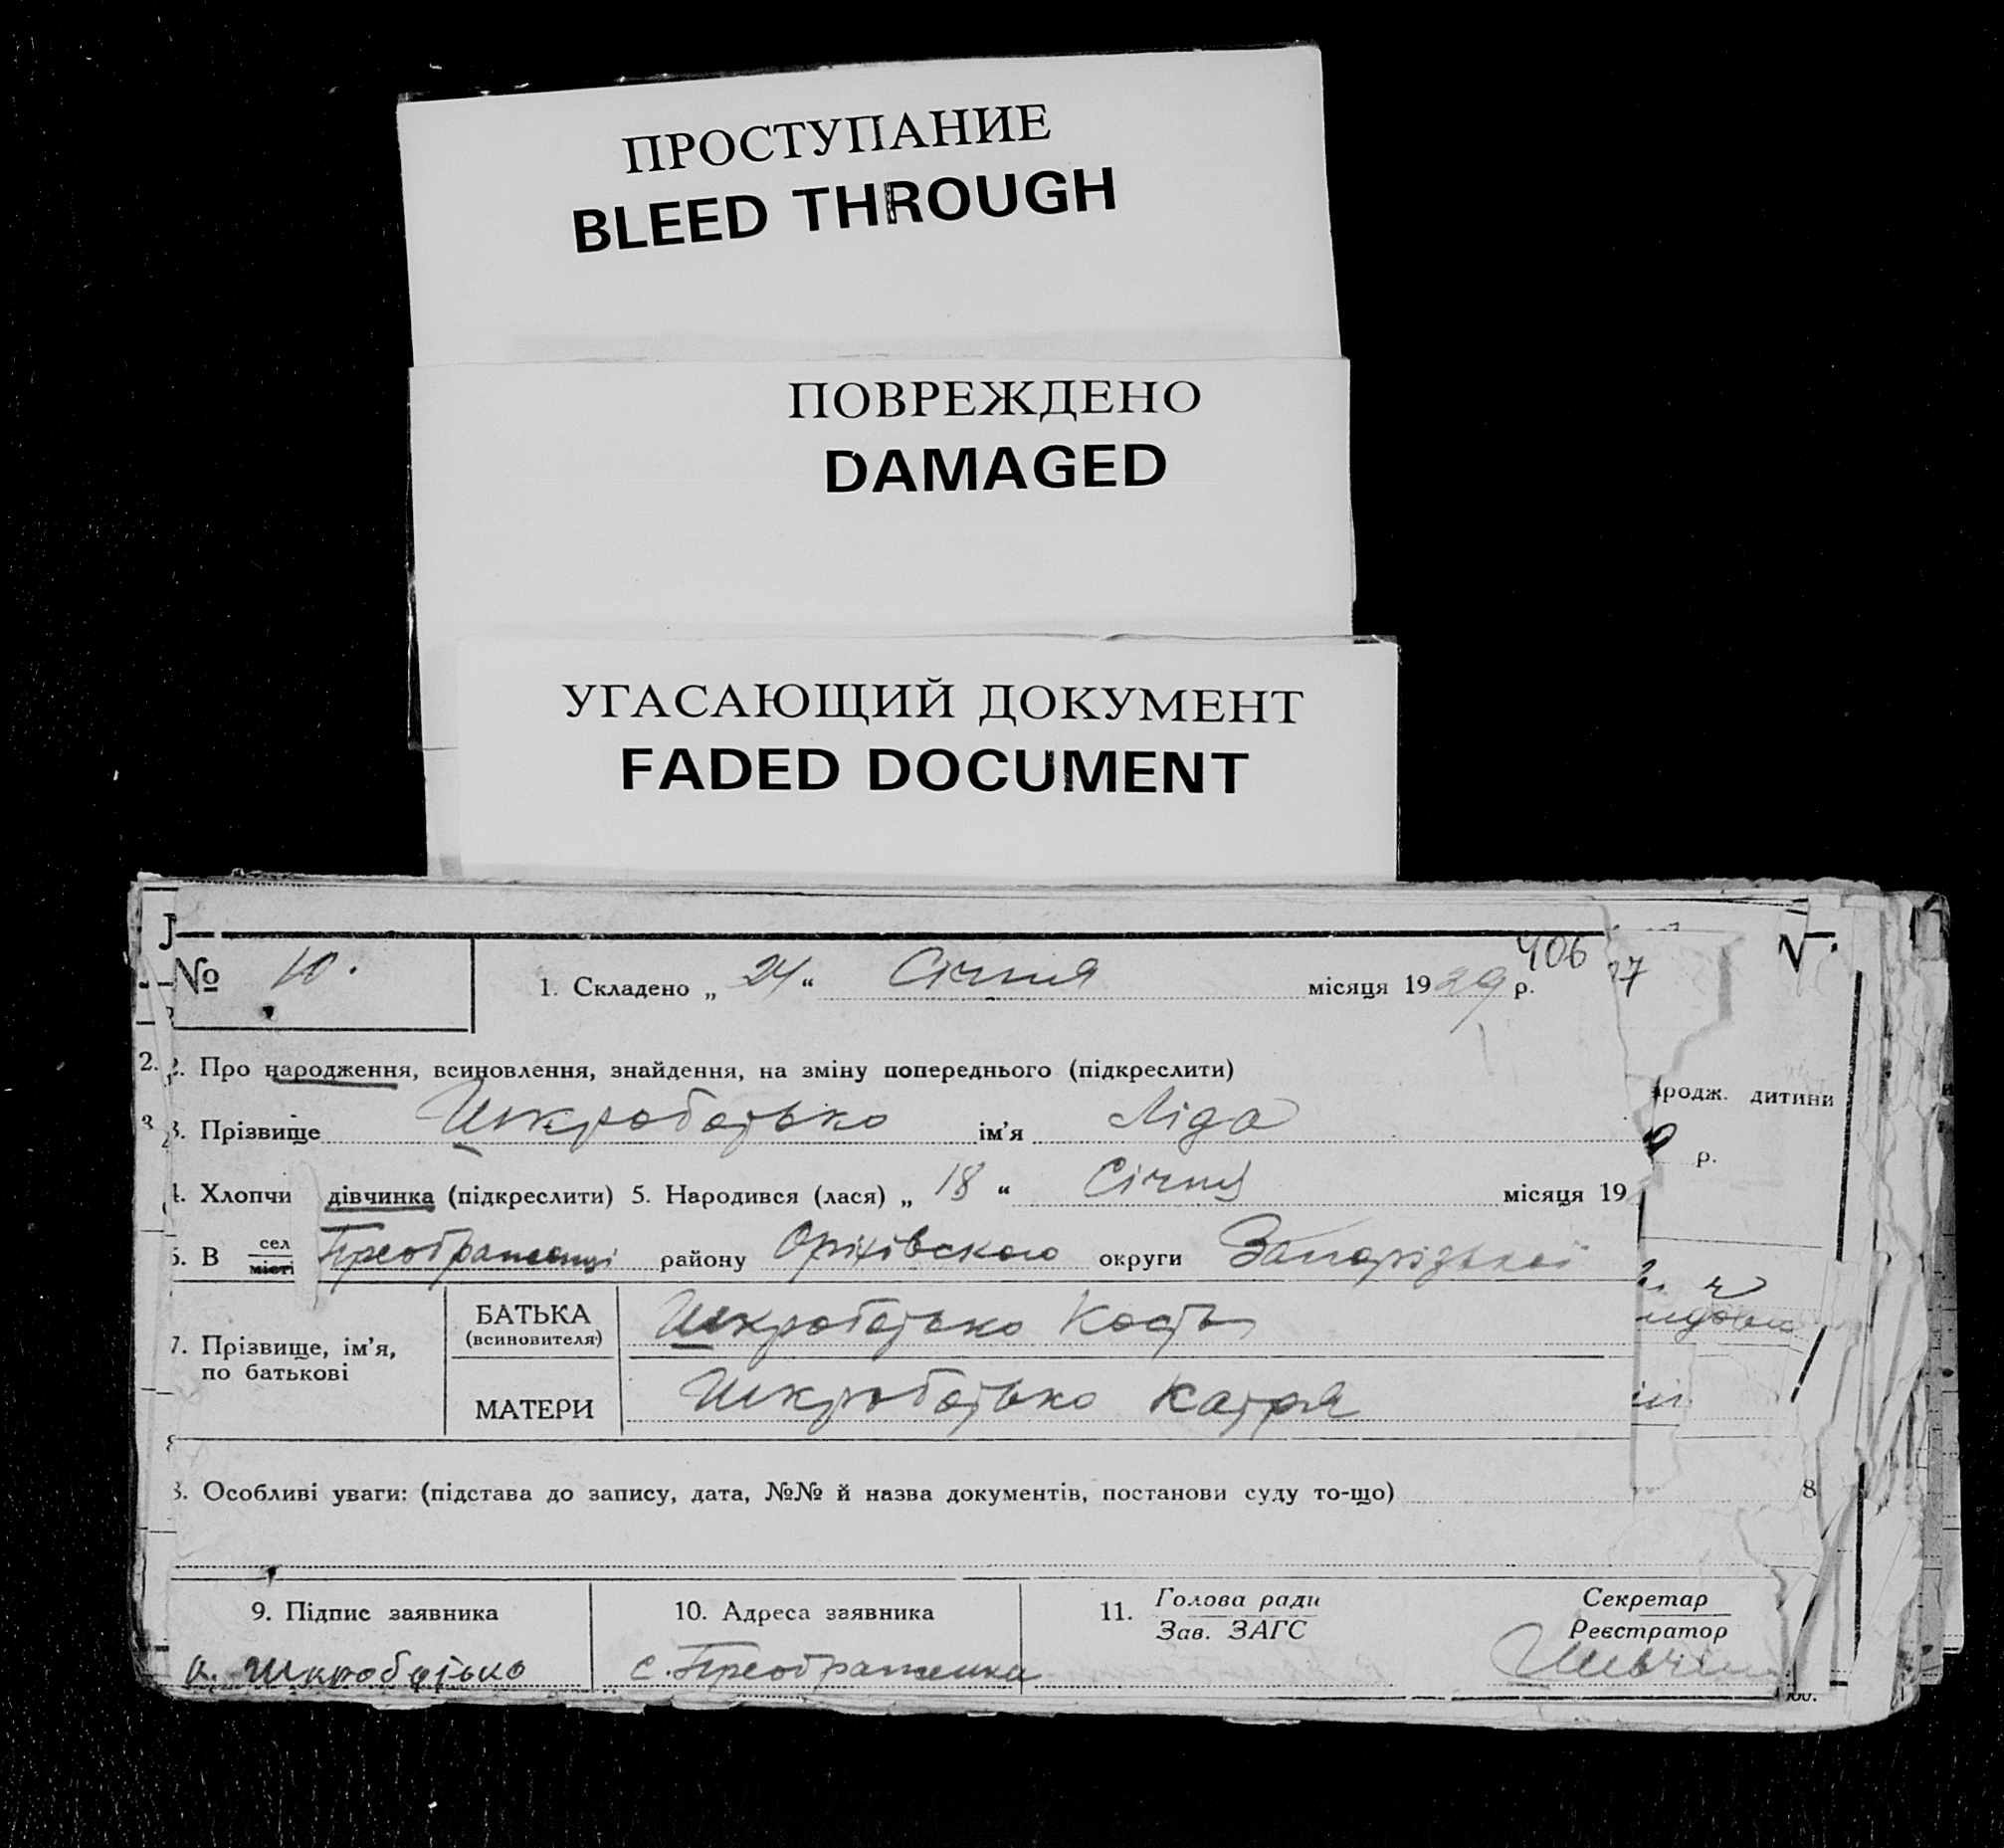 ПРОСТУПАНИЕ
BLEED THROUGH
ПОВРЕЖДЕНО
DAMAGED
УГАСАЮЩИЙ ДОКУМЕНТ
FADED DOCUMENT
406
№ 10. 1. Складено „ 24 “ Січня місяця 1929 р.
2. Про народження, всиновлення, знайдення, на зміну попереднього (підкреслити)
ародж. дитини
3. Прізвище Шкробатько ім'я Ліда
р.
4. Хлопчи дівчинка (підкреслити) 5. Народився (лася) „ 18 “ Січня місяця 19
В сел міст Преображенці району Оріхівского округи Запорізької
7. Прізвище, ім'я, по батькові
БАТЬКА (всиновителя) Шкробатько Кость
МАТЕРИ Шкробатько Катря
8. Особливі уваги: (підстава до запису, дата, №№ й назва документів, постанови суду то-що)
8
9. Підпис заявника 10. Адреса заявника 11. Голова ради Зав. ЗАГС Секретар Реєстратор
Шкробатько с. Преображенка